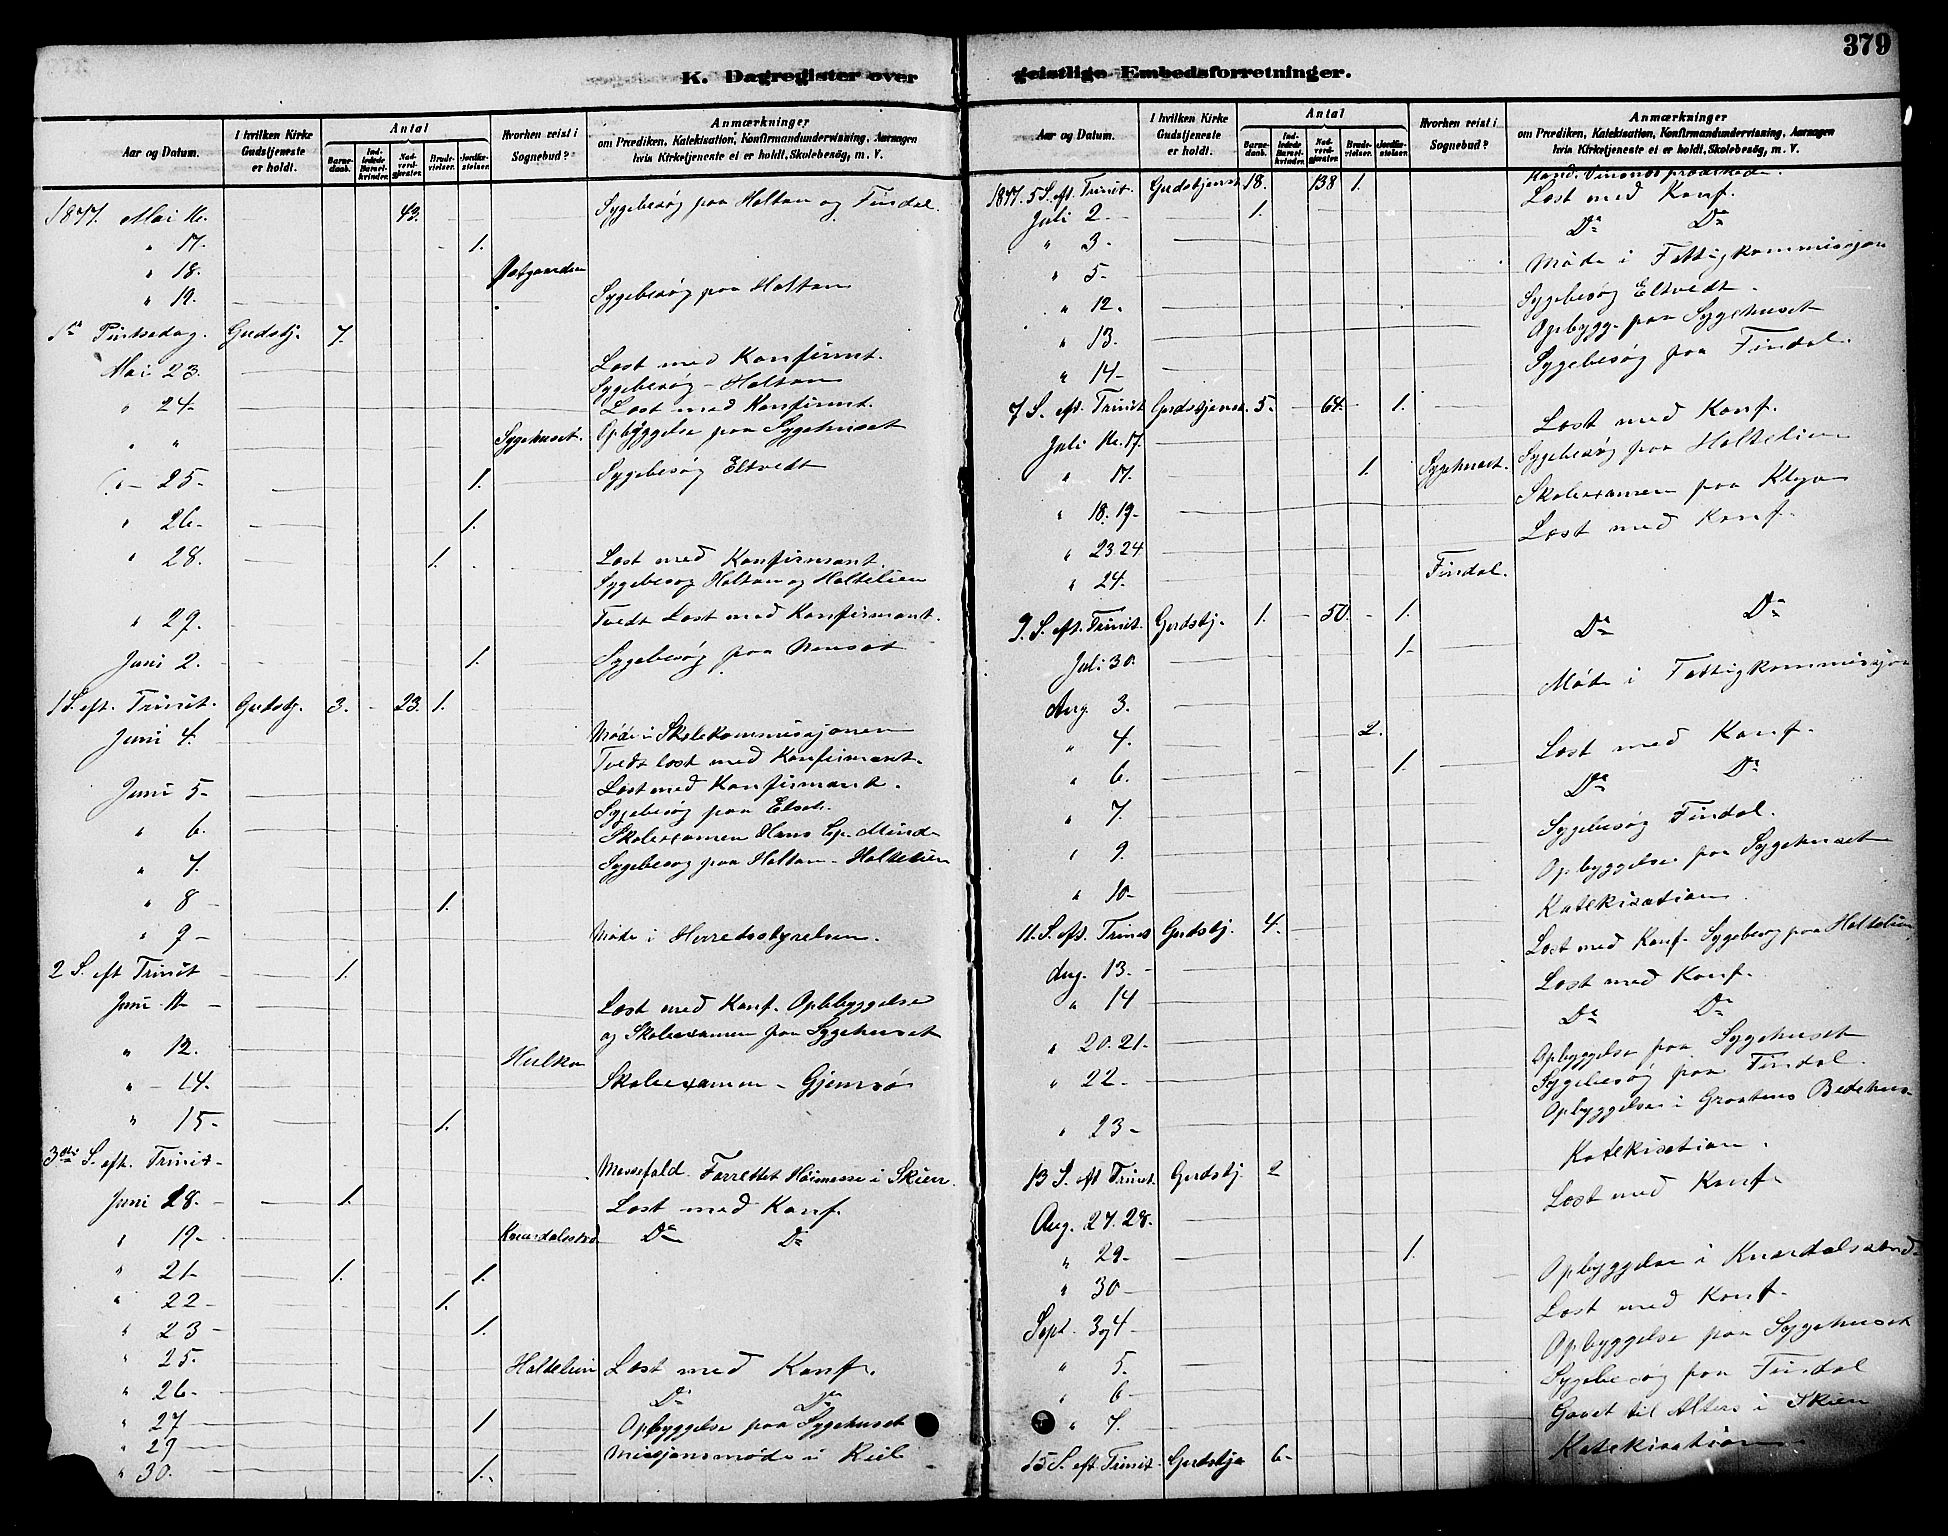 379
K. Dagregister over
Aar og Datum.
I hvilken Kirke Gudstjeneste er holdt.
Antal
Barnedaab.
Indledede Barselkvinder.
Nadverdgjester.
Brudevielser.
Jordfæstelser.
Hvorhen reist i Sognebud?
Anmærkninger
om Prædiken, Katekisation, Konfirmandundervisning, Aarsagen
hvis Kirketjeneste ei er holdt, Skolebesög, m. V.
43. Sygebesøg paa Holtan og Findal.
" 17. 1.
" 18.
" 19. Sygebesøg paa Holtan
Pintsedag. Gudstj. 7.
Mai 23. Læst med Konfirmt.
Sygebesøg - Holtan
" 24. Læst med Konfirmt.
" " Sygehuset. Opbyggelse paa Sygehuset
25. 1. Sygebesøg Eltvedt
" 26. 1.
" 28. 1. Læst med Konfirmant
Sygebesøg Holtan og Holtelien
" 29. Tvedt Læst med Konfirmant.
Juni 2. 1. Sygebesøg paa
1 S. eft. Trinit. Gudstj. 3. 23. 1.
Juni 4. Møde i Skolekommissjonen
Tvedt læst med Konfirmant.
Juni 5. Læst med Konfirmant.
Sygebesøg paa
" 6. Skoleexamen
" 7. Sygebesøg paa Holtan - Holtelien
" 8 1.
" 9 Møde i Herredsstyrelsen.
2 S. eft Trinit 1.
Juni 11. Læst med Konf. Opbyggelse
og Skoleexamen paa Sygehuset
" 12.
" 14. Skoleexamen - Gjemsø
" 15. 1.
3die S. eft. Trinit Messefald. Forrettet Høimesse i Skien.
Juni 18. 1. Læst med Konf.
" 19 Do Do
" 21. 1. 1.
" 22 1.
" 23 1.
" 25. Holtelien Læst med Konf.
" 26 Do Do
" 27 1. Opbyggelse paa Sygehuset
" 29 Missjonsmøde i
" 30. 1.
geistlige Embedsforretninger.
Aar og Datum.
I hvilken Kirke Gudstjeneste er holdt.
Antal
Barnedaab.
Indledede Barselkvinder.
Nadverdgjester.
Brudevielser.
Jordfæstelser.
Hvorhen reist i Sognebud?
Anmærkninger
om Prædiken, Katekisation, Konfirmandundervisning, Aarsagen
hvis Kirketjeneste ei er holdt, Skolebesög, m. V.
5 S. eft. Trinit. Gudstjenst. 18. 138 1. prædikede.
Juli 2. 1. Læst med Konf.
" 3. Do Do
" 5. Møde i Fattigkommissjon
" 12. Sygebesøg Eltvedt.
" 13. Opbygg. paa Sygehuset
" 14 Sygebesøg paa Findal.
7 S. eft. Trinit Gudstjenst. 5. 64. 1.
Juli 16. 17. Læst med Konf.
" 17. 1. Sygehuset. Sygebesøg paa Holtelien
" 18. 19. Skoleexamen paa
" 23. 24 Læst med Konf.
" 24. Findal.
9. S. eft. Trinit. Gudstj. 1. 50. 1.
Juli 30. 1. Do Do
Aug. 3. Møde i Fattigkommissjon
" 4. 2.
" 6. 1. Læst med Konf.
" 7. Do Do
" 9. Sygebesøg Findal.
" 10 Opbyggelse paa Sygehuset
Katekisation.
11. S. eft. Trinit Gudstj. 4.
Aug. 13. Læst med Konf. Sygebesøg paa Holtelien
" 14 Læst med Konf.
" 20. 21. Do Do
" 22. Opbyggelse paa Sygehuset
Sygebesøg paa Findal.
" 23 Opbyggelse i Graatens Bedehus
Katekisation.
13 S. eft Trinit. Gudstj. 2
Aug. 27. 28. Læst med Konf
" 29 1.
" 30 Opbyggelse i Knardalsstrand
Sept. 3 og 4 Læst med Konf.
" 5. Opbyggelse paa Sygehuset
" 6 Sygebesøg paa Findal
" 7. Gaaet til Alters i Skien
15 S. eft. Trinit. Gudstj. 6 Katekisation